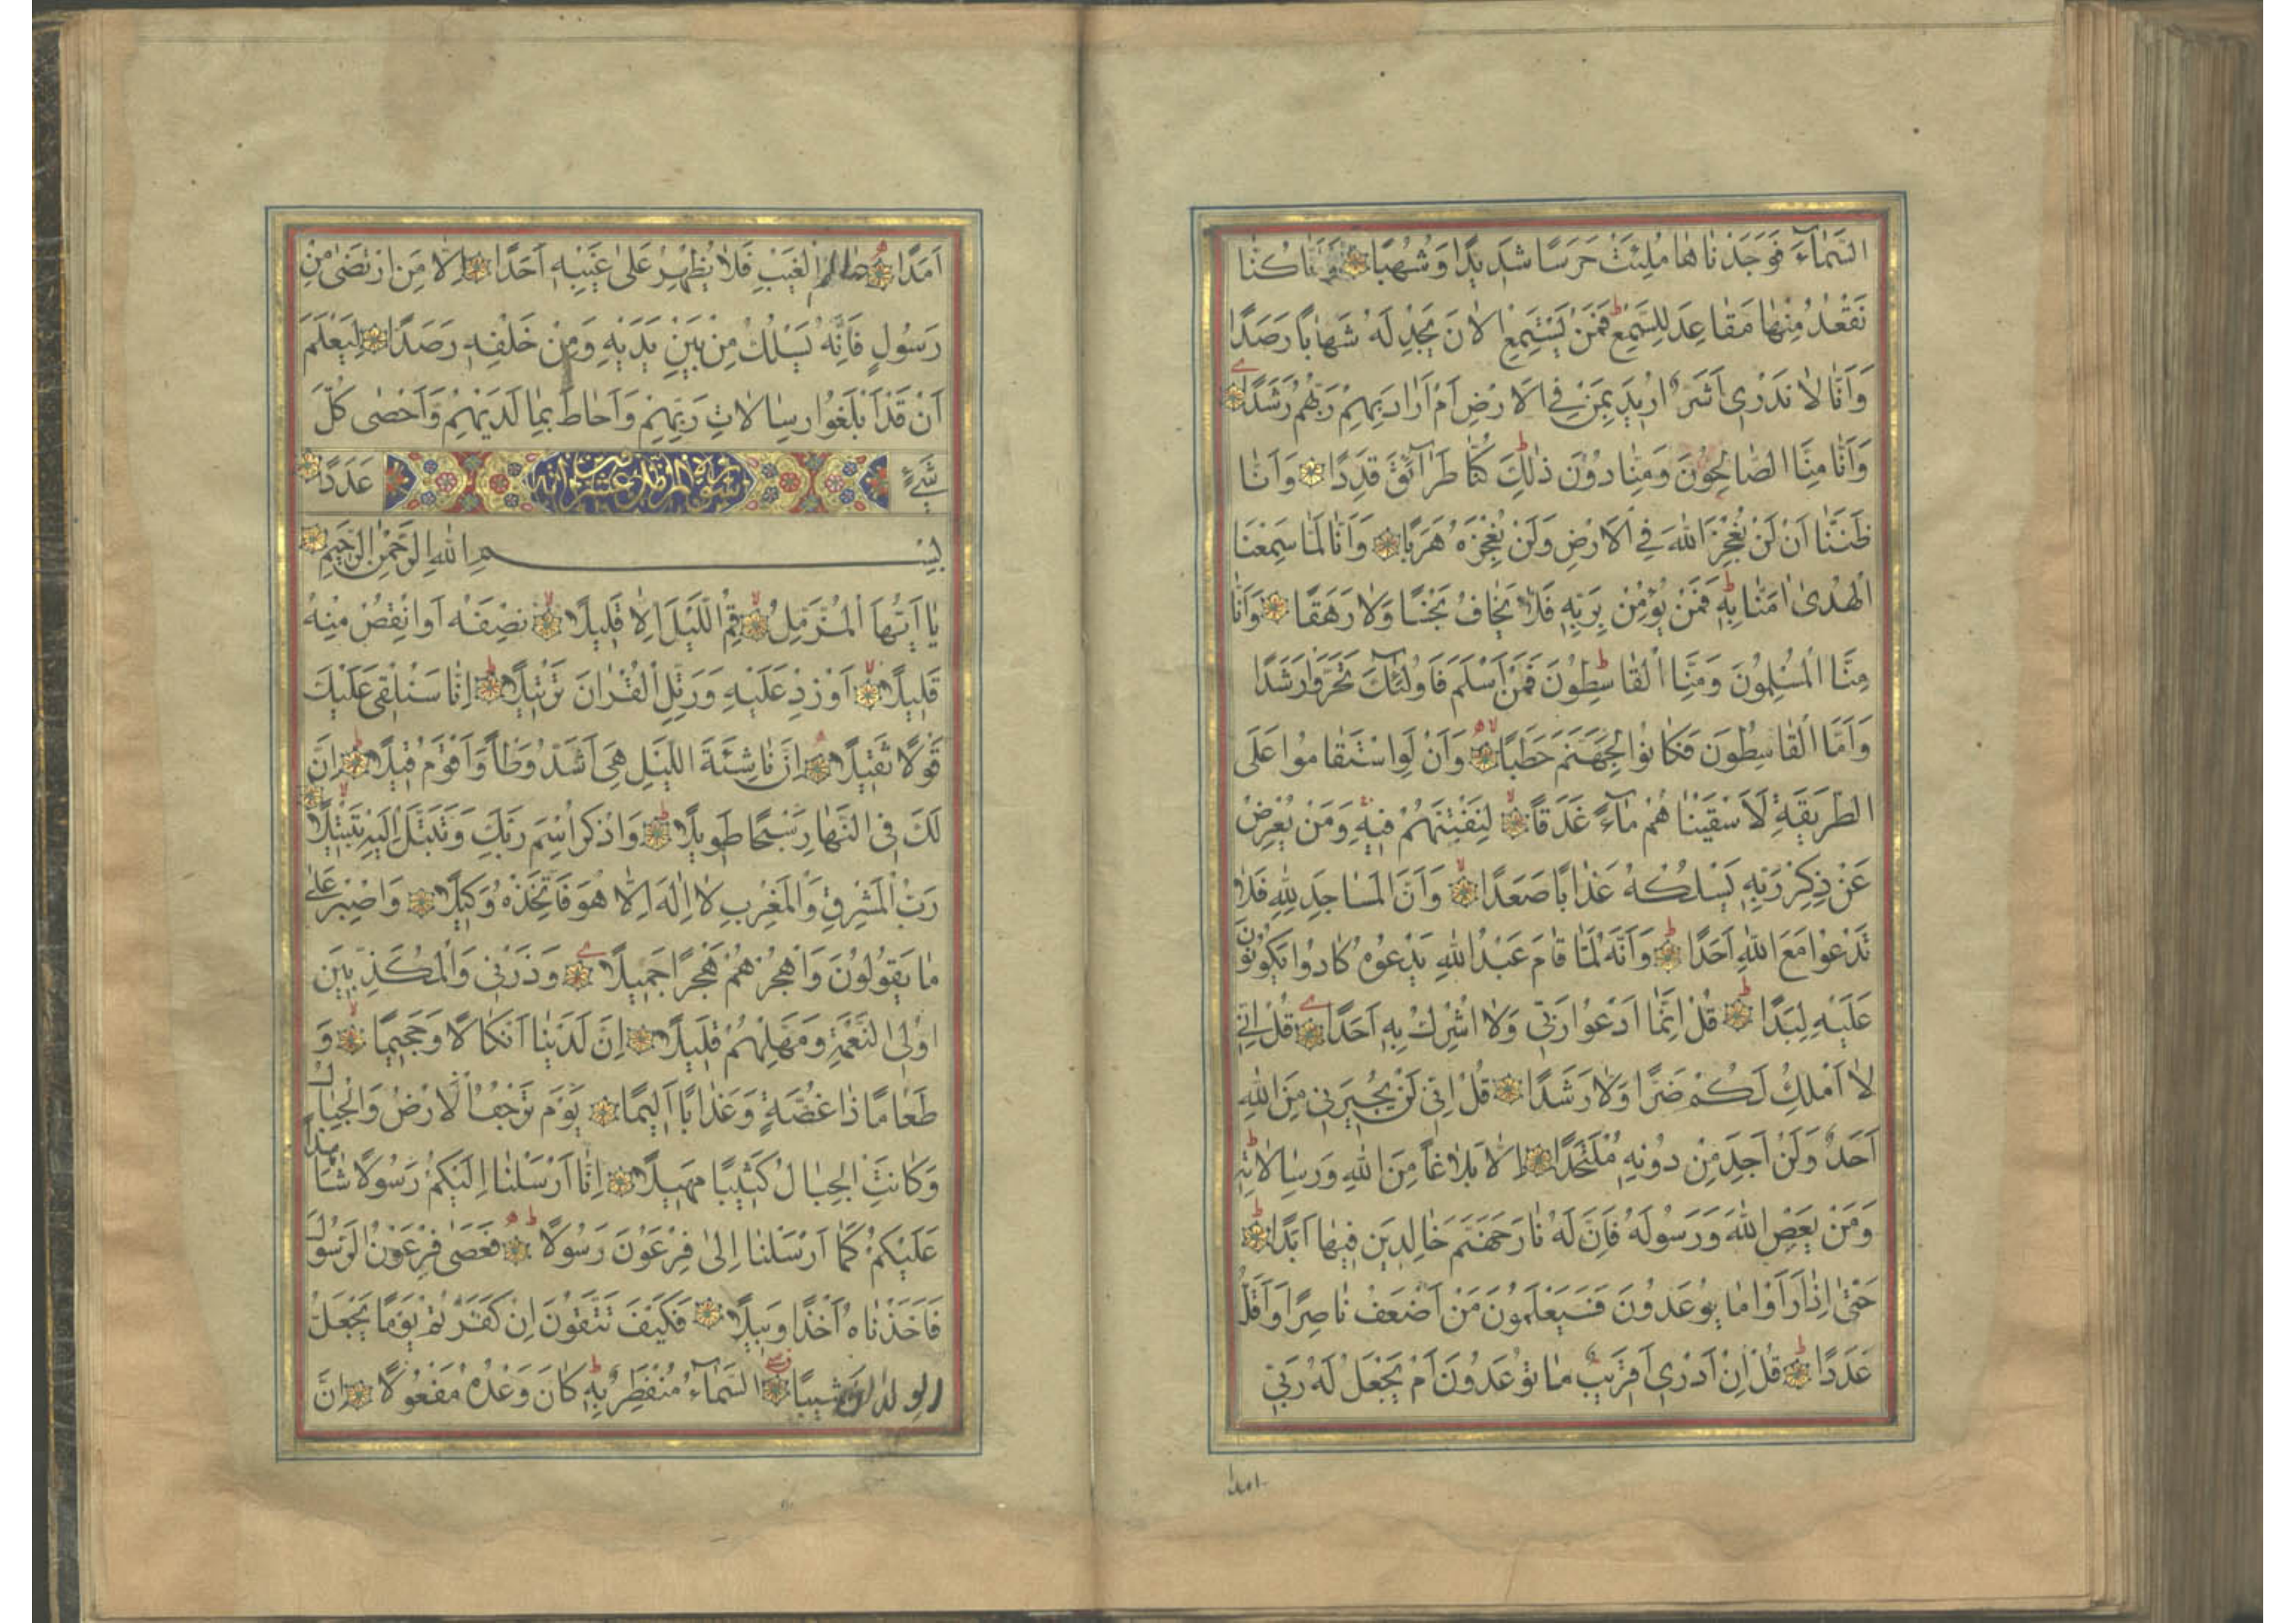 السَّمٰاۤءَ فَوَجَدْنٰاهٰا مُلِئَتْ حَرَسًا شَدِيدًا وَشُهُبًا وَاَنّٰا كُنّٰا
نَقْعُدُ مِنْهٰا مَقٰاعِدَ لِلسَّمْعِ فَمَنْ يَسْتَمِعِ الْاٰنَ يَجِدْ لَهُ شَهٰابًا رَصَدًا
وَاَنّٰا لٰا نَدْرِى اَشَرٌّ اُرِيدَ بِمَنْ فِى الْاَرْضِ اَمْ اَرٰادَ بِهِمْ رَبُّهُمْ رَشَدًا
وَاَنّٰا مِنَّا الصّٰالِحُونَ وَمِنّٰا دُوْنَ ذٰلِكَ كُنّٰا طَرٰاۤئِقَ قِدَدًا وَاَنّٰا
ظَنَنّٰا اَنْ لَنْ نُعْجِزَ اللّٰهَ فِى الْاَرْضِ وَلَنْ نُعْجِزَهُ هَرَبًا وَاَنّٰا لَمّٰا سَمِعْنَا
الْهُدٰى اٰمَنّٰا بِهِ فَمَنْ يُؤْمِنْ بِرَبِّهِ فَلٰا يَخٰافُ بَخْسًا وَلٰا رَهَقًا وَاَنّٰا
مِنَّا الْمُسْلِمُونَ وَمِنَّا الْقٰاسِطُونَ فَمَنْ اَسْلَمَ فَاُولٰۤئِكَ تَحَرَّوْا رَشَدًا
وَاَمَّا الْقٰاسِطُونَ فَكٰانُوا لِجَهَنَّمَ حَطَبًا وَاَنْ لَوِ اسْتَقٰامُوا عَلَى
الطَّرِيقَةِ لَاَسْقَيْنٰاهُمْ مٰاۤءً غَدَقًا لِنَفْتِنَهُمْ فِيهِ وَمَنْ يُعْرِضْ
عَنْ ذِكْرِ رَبِّهِ يَسْلُكْهُ عَذٰابًا صَعَدًا وَاَنَّ الْمَسٰاجِدَ لِلّٰهِ فَلٰا
تَدْعُوا مَعَ اللّٰهِ اَحَدًا وَاَنَّهُ لَمّٰا قٰامَ عَبْدُ اللّٰهِ يَدْعُوهُ كٰادُوا يَكُونُونَ
عَلَيْهِ لِبَدًا قُلْ اِنَّمٰا اَدْعُوا رَبِّى وَلٰا اُشْرِكُ بِهِ اَحَدًا قُلْ اِنِّى
لٰا اَمْلِكُ لَكُمْ ضَرًّا وَلٰا رَشَدًا قُلْ اِنِّى لَنْ يُجِيرَنِى مِنَ اللّٰهِ
اَحَدٌ وَلَنْ اَجِدَ مِنْ دُونِهِ مُلْتَحَدًا اِلّٰا بَلٰاغًا مِنَ اللّٰهِ وَرِسٰالٰاتِهِ
وَمَنْ يَعْصِ اللّٰهَ وَرَسُولَهُ فَاِنَّ لَهُ نٰارَ جَهَنَّمَ خٰالِدِينَ فِيهٰا اَبَدًا
حَتّٰى اِذٰا رَاَوْا مٰا يُوعَدُونَ فَسَيَعْلَمُونَ مَنْ اَضْعَفُ نٰاصِرًا وَاَقَلُّ
عَدَدًا قُلْ اِنْ اَدْرِى اَقَرِيبٌ مٰا تُوعَدُونَ اَمْ يَجْعَلُ لَهُ رَبِّى
امدا
اَمَدًا عٰالِمُ الْغَيْبِ فَلٰا يُظْهِرُ عَلٰى غَيْبِهِ اَحَدًا اِلّٰا مَنِ ارْتَضٰى مِنْ
رَسُولٍ فَاِنَّهُ يَسْلُكُ مِنْ بَيْنِ يَدَيْهِ وَمِنْ خَلْفِهِ رَصَدًا لِيَعْلَمَ
اَنْ قَدْ اَبْلَغُوا رِسٰالٰاتِ رَبِّهِمْ وَاَحٰاطَ بِمٰا لَدَيْهِمْ وَاَحْصٰى كُلَّ
شَىْءٍ سورة المزمل عشرون آية عَدَدًا
بِسْمِ اللّٰهِ الرَّحْمٰنِ الرَّحِيمِ
يٰا اَيُّهَا الْمُزَّمِّلُ قُمِ اللَّيْلَ اِلّٰا قَلِيلًا نِصْفَهُ اَوِ انْقُصْ مِنْهُ
قَلِيلًا اَوْ زِدْ عَلَيْهِ وَرَتِّلِ الْقُرْاٰنَ تَرْتِيلًا اِنّٰا سَنُلْقِى عَلَيْكَ
قَوْلًا ثَقِيلًا اِنَّ نٰاشِئَةَ اللَّيْلِ هِىَ اَشَدُّ وَطْاً وَاَقْوَمُ قِيلًا اِنَّ
لَكَ فِى النَّهٰارِ سَبْحًا طَوِيلًا وَاذْكُرِ اسْمَ رَبِّكَ وَتَبَتَّلْ اِلَيْهِ تَبْتِيلًا
رَبُّ الْمَشْرِقِ وَالْمَغْرِبِ لٰا اِلٰهَ اِلّٰا هُوَ فَاتَّخِذْهُ وَكِيلًا وَاصْبِرْ عَلٰى
مٰا يَقُولُونَ وَاهْجُرْهُمْ هَجْرًا جَمِيلًا وَذَرْنِى وَالْمُكَذِّبِينَ
اُولِى النَّعْمَةِ وَمَهِّلْهُمْ قَلِيلًا اِنَّ لَدَيْنٰا اَنْكٰالًا وَجَحِيمًا وَ
طَعٰامًا ذٰا غُصَّةٍ وَعَذٰابًا اَلِيمًا يَوْمَ تَرْجُفُ الْاَرْضُ وَالْجِبٰالُ
وَكٰانَتِ الْجِبٰالُ كَثِيبًا مَهِيلًا اِنّٰا اَرْسَلْنٰا اِلَيْكُمْ رَسُولًا شٰاهِدًا
عَلَيْكُمْ كَمٰا اَرْسَلْنٰا اِلٰى فِرْعَوْنَ رَسُولًا فَعَصٰى فِرْعَوْنُ الرَّسُولَ
فَاَخَذْنٰاهُ اَخْذًا وَبِيلًا فَكَيْفَ تَتَّقُونَ اِنْ كَفَرْتُمْ يَوْمًا يَجْعَلُ
الْوِلْدٰانَ شِيبًا السَّمٰاۤءُ مُنْفَطِرٌ بِهِ كٰانَ وَعْدُهُ مَفْعُولًا اِنَّ